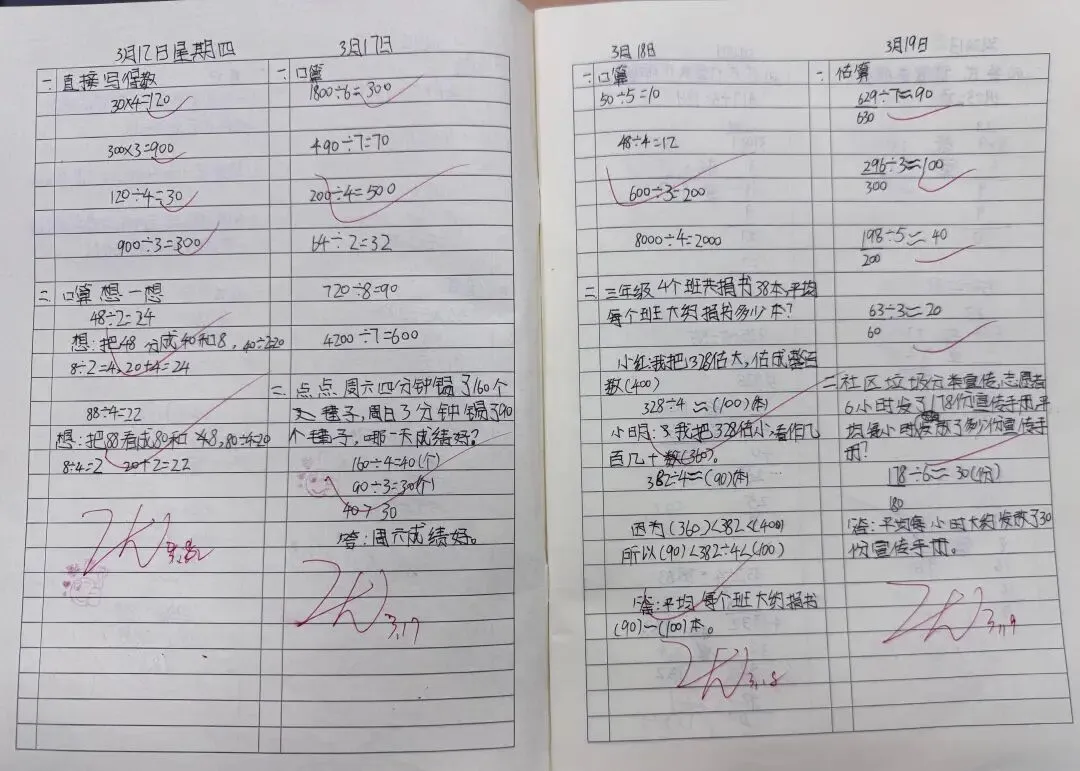 3月12日星期四
一、直接写得数
30×4=120
300×3=900
120÷4=30
900÷3=300
二、口算想一想
48÷2=24
想:把48分成40和8,40÷2=20
8÷2=4,20+4=24
88÷4=22
想:把88看成80和48,80÷4=20
8÷4=2 20+2=22
3月17日
一、口算
1800÷6=300
490÷7=70
200÷4=500
64÷2=32
720÷8=90
4200÷7=600
二、点点周六四分钟锡了160个
种子,周日3分钟锡了90
个种子,哪一天成绩好?
160÷4=40(个)
90÷3=30(个)
40>30
答:周六成绩好。
3.17
3月18日
一、口算
50÷5=10
48÷4=12
600÷3=200
8000÷4=2000
二、三年级4个班共捐书38本,平均
每个班大约捐书多少本?
小红:我把328估大,估成整百
数(400)
328÷4≈(100)本
小明:我把328估小,看作几
百几十数(360)。
382÷4≈(90)本
因为(360)<382<(400)
所以(90)<382÷4<(100)
答:平均每个班大约捐书
(90)~(100)本。
3.18
3月19日
一、估算
629÷7≈90
630
296÷3≈100
300
198÷5≈40
200
63÷3≈20
60
二、社区垃圾分类宣传,志愿者
6小时发了178份宣传手册,平
均每小时发放了多少份宣传手
册?
178÷6≈30(份)
180
答:平均每小时大约发放了30
份宣传手册。
3.19